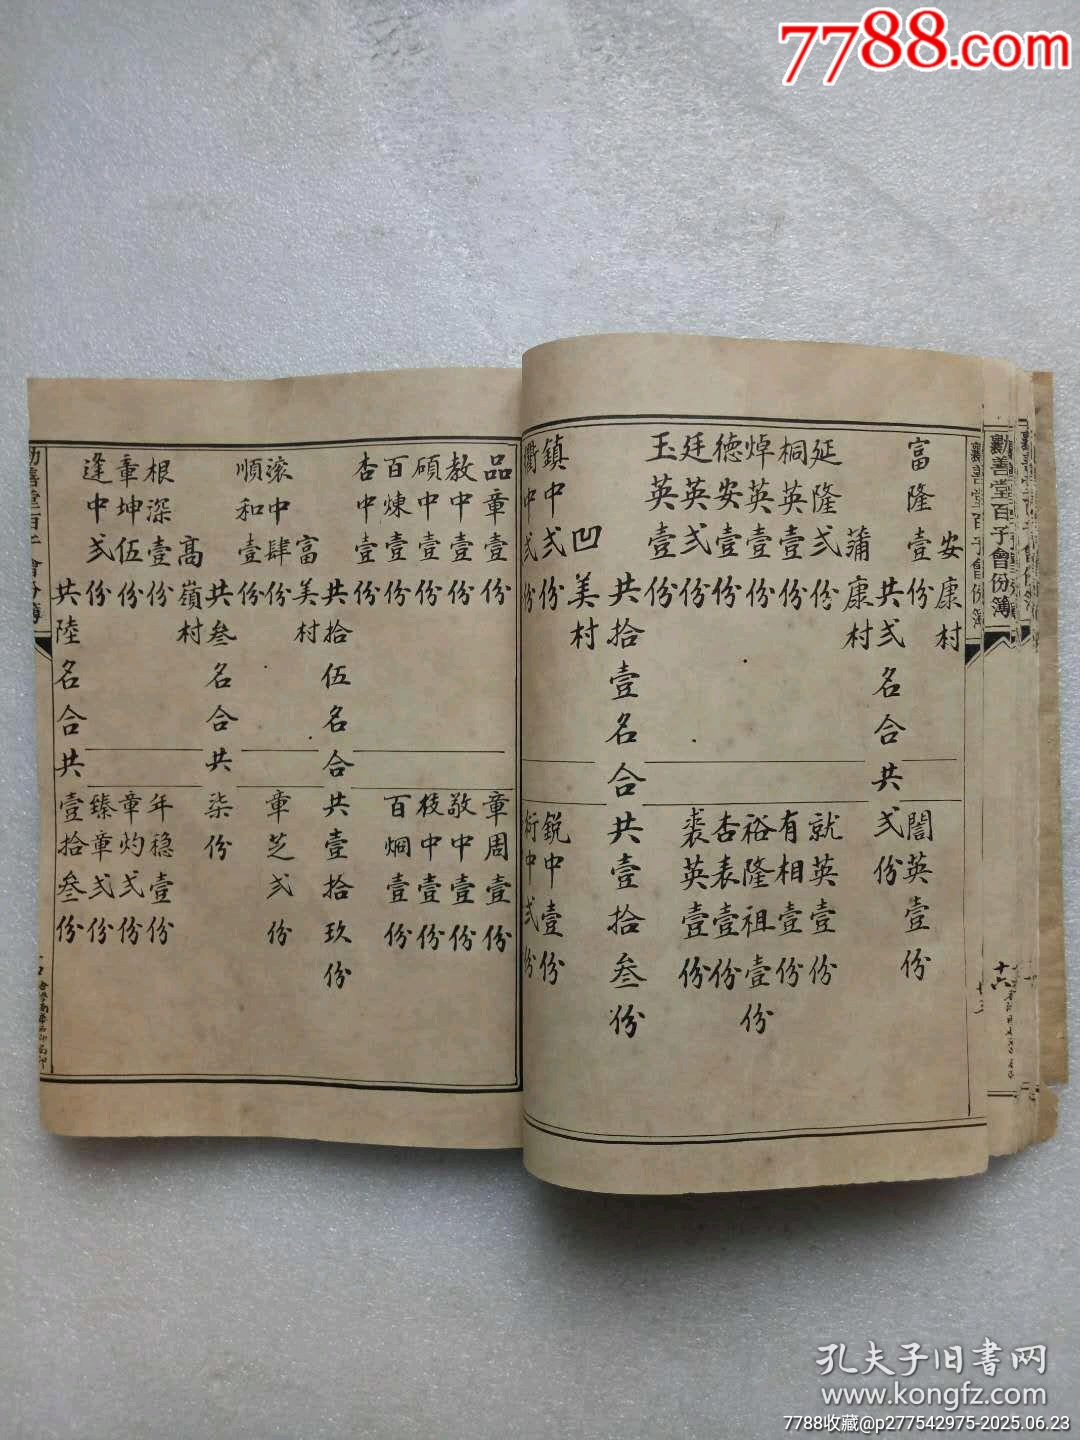 7788.com
勸善堂百子會份簿
十六
勸善堂百子會份簿
安康村
富隆壹份
誾英壹份
共弍名合共弍份
蒲康村
延隆弍份
就英壹份
桐英壹份
有相壹份
焯英壹份
裕隆祖壹份
德安壹份
杏表壹份
廷英弍份
裘英壹份
玉英壹份
共拾壹名合共壹拾叁份
凹美村
鎮中弍份
鋭中壹份
衢中弍份
衍中弍份
品章壹份
章周壹份
教中壹份
敬中壹份
碩中壹份
枝中壹份
百煉壹份
百烱壹份
杏中壹份
共拾伍名合共壹拾玖份
富美村
滚中肆份
章芝弍份
順和壹份
共叁名合共柒份
高嶺村
根深壹份
年穏壹份
章坤伍份
章灼弍份
逢中弍份
臻章弍份
共陸名合共壹拾叁份
孔夫子旧書网
www.kongfz.com
7788收藏@p277542975-2025.06.23